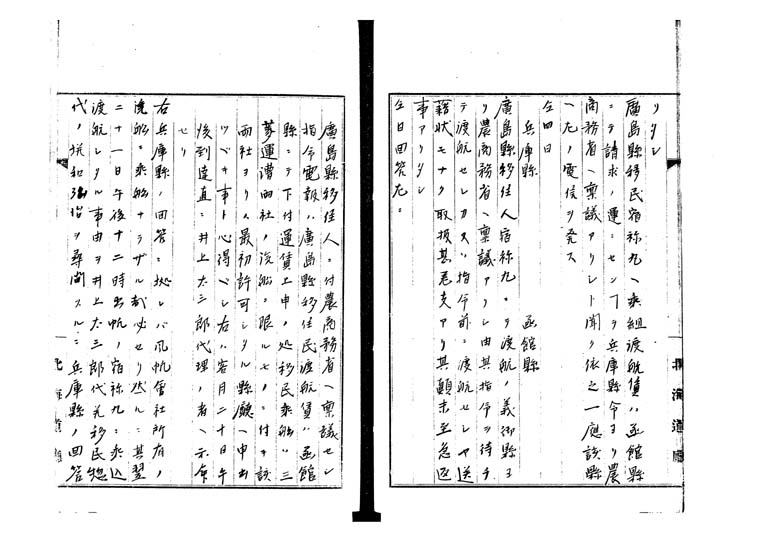 リタレ
廣島縣移民宿祢丸ヘ乘組渡航賃ハ函館縣
ニテ請求ノ運ニセンヿヲ兵庫縣令ヨリ農
商務省ヘ稟議アリシト聞ク依之一應該縣
ヘ左ノ電信ヲ発ス
仝四日
兵庫縣　函館縣
廣島縣移住人宿祢丸ニテ渡航ノ義御縣ヨ
リ農商務省ヘ稟議アリシ由其指令ヲ待チ
テ渡航セシカ又ハ指令前ニ渡航セシヤ送
籍状モナク取扱甚差支アリ其顛末至急返
事アリタシ
仝日回答左ニ
廣島縣移住人ニ付農商務省ヘ稟議セシ
指令電報ハ廣島縣移住民渡航賃ハ函館
縣ニテ下付運賃上申ノ処移民乘船ハ三
菱運漕両社ノ汽船ニ限ルモノニ付キ該
両社ヨリ最初許可シタル縣廳ヘ申出
ツベキ事ト心得ベシ右ハ客月二十日午
後到達直ニ井上大三郎代理ノ者ヘ示命
セリ
右兵庫縣ノ回答ニ拠レバ風帆會社所有ノ
汽船ニ乘船ナラザル哉必セリ然ルニ其翌
二十一日午後十二時出帆ノ宿祢丸ニ乘込
渡航シタル事由ヲ井上大三郎代兼移民惣
代ノ浅和治ヲ尋問スルニ兵庫縣ノ回答